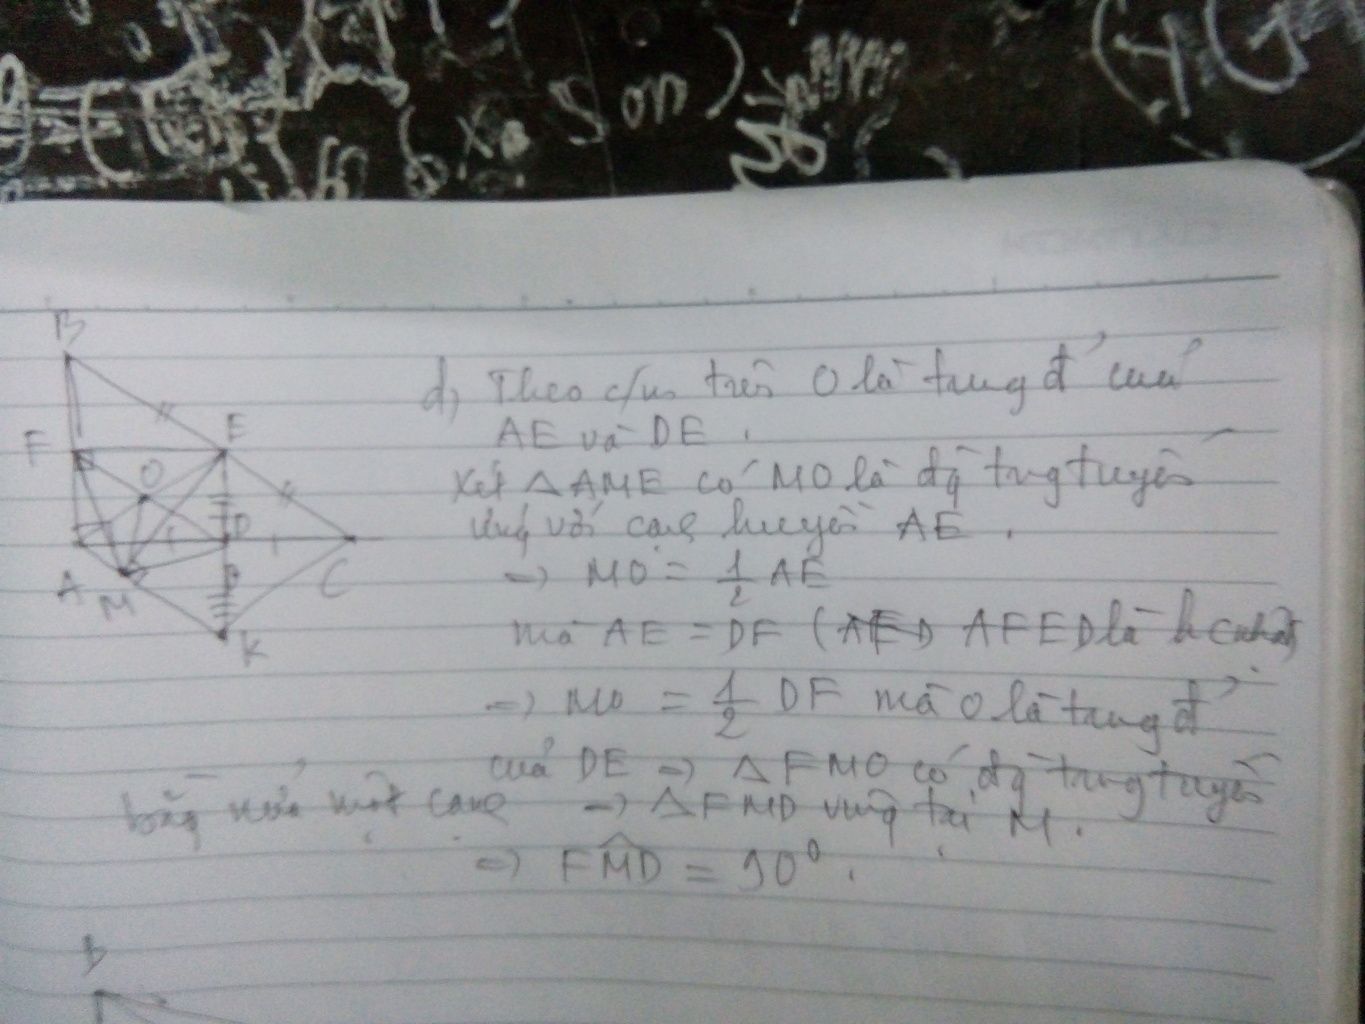 Son)
B
F
E
O
D
A
M
C
K
d) Theo c/m trên O là trung đ' của
AE và DE.
Xét △AME có MO là đg trung tuyến
ứng với cạnh huyền AE.
=> MO = 1/2 AE
mà AE = DF ( AFED là h c nhật)
=> MO = 1/2 DF mà O là trung đ'
của DE => △FMO có đg trung tuyến
bằng nửa một cạnh => △FMD vuông tại M.
=> FMD = 90°.
B